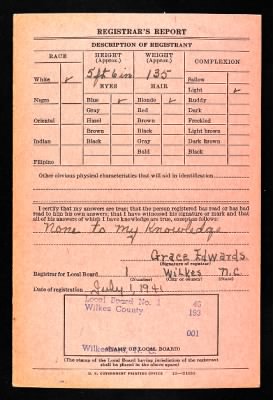 REGISTRAR'S REPORT
DESCRIPTION OF REGISTRANT
RACE HEIGHT (Approx.) WEIGHT (Approx.) COMPLEXION
5 ft 6 in. 135 Sallow
White ✓ EYES HAIR Light ✓
Negro Blue ✓ Blonde ✓ Ruddy
Gray Red Dark
Oriental Hazel Brown Freckled
Brown Black Light brown
Indian Black Gray Dark brown
Bald Black
Filipino
Other obvious physical characteristics that will aid in identification
I certify that my answers are true; that the person registered has read or has had
read to him his own answers; that I have witnessed his signature or mark and that
all of his answers of which I have knowledge are true, except as follows:
None to my Knowledge
Grace Edwards
(Signature of registrar)
Registrar for Local Board 1 Wilkes N.C.
(Number) (City or county) (State)
Date of registration July 1, 1941
Local Board No. 1 45
Wilkes County 193
001
(STAMP OF LOCAL BOARD)
(The stamp of the Local Board having jurisdiction of the registrant
shall be placed in the above space)
U. S. GOVERNMENT PRINTING OFFICE